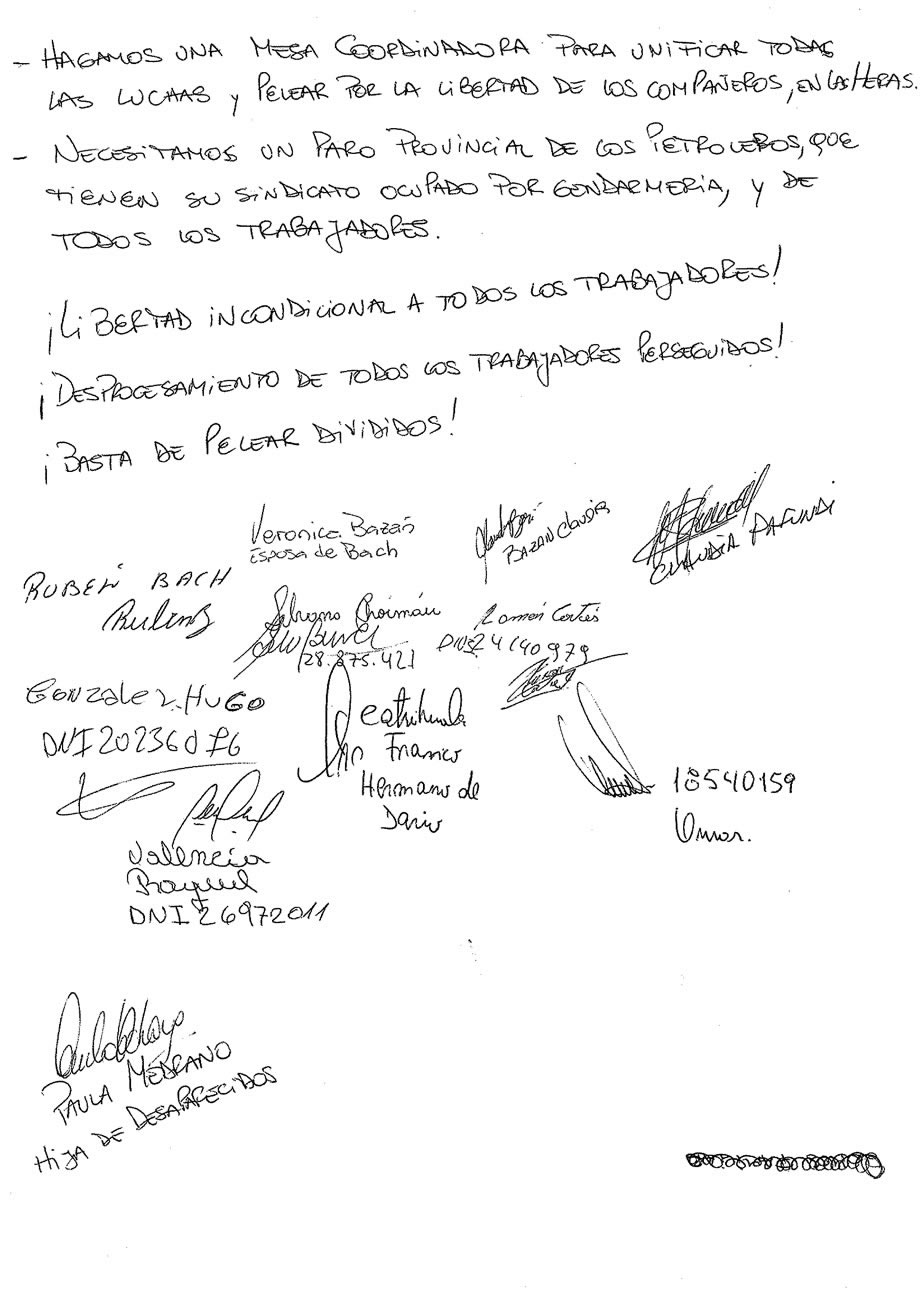 - HAGAMOS UNA MESA COORDINADORA PARA UNIFICAR TODAS
LAS LUCHAS y PELEAR POR LA LIBERTAD DE LOS COMPAÑEROS, EN LAS HERAS.
- NECESITAMOS UN PARO PROVINCIAL DE LOS PETROLEROS, QUE
TIENEN SU SINDICATO OCUPADO POR GENDARMERIA, y DE
TODOS LOS TRABAJADORES.
¡LIBERTAD INCONDICIONAL A TODOS LOS TRABAJADORES!
¡DESPROCESAMIENTO DE TODOS LOS TRABAJADORES PERSEGUIDOS!
¡BASTA DE PELEAR DIVIDIDOS!
Veronica Bazán
Esposa de Bach
BAZAN CLAUDIA
CLAUDIA PAFUNDI
RUBEN BACH
28.875.421
Ramón Cortés
24140979
GONZALEZ HUGO
DNI 202360
Franco
Hermano de
Dario
18540159
Omar.
Valencia
Raquel
DNI 26972011
PAULA MEDRANO
HIJA DE DESAPARECIDOS